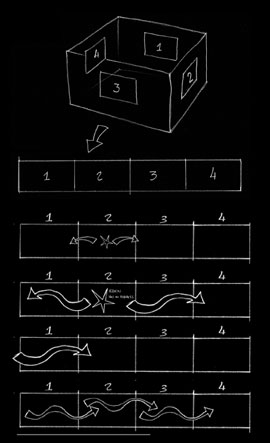 1
4
2
3
1 2 3 4
1 2 3 4
1 2 3 4
1 2 3 4
1 2 3 4